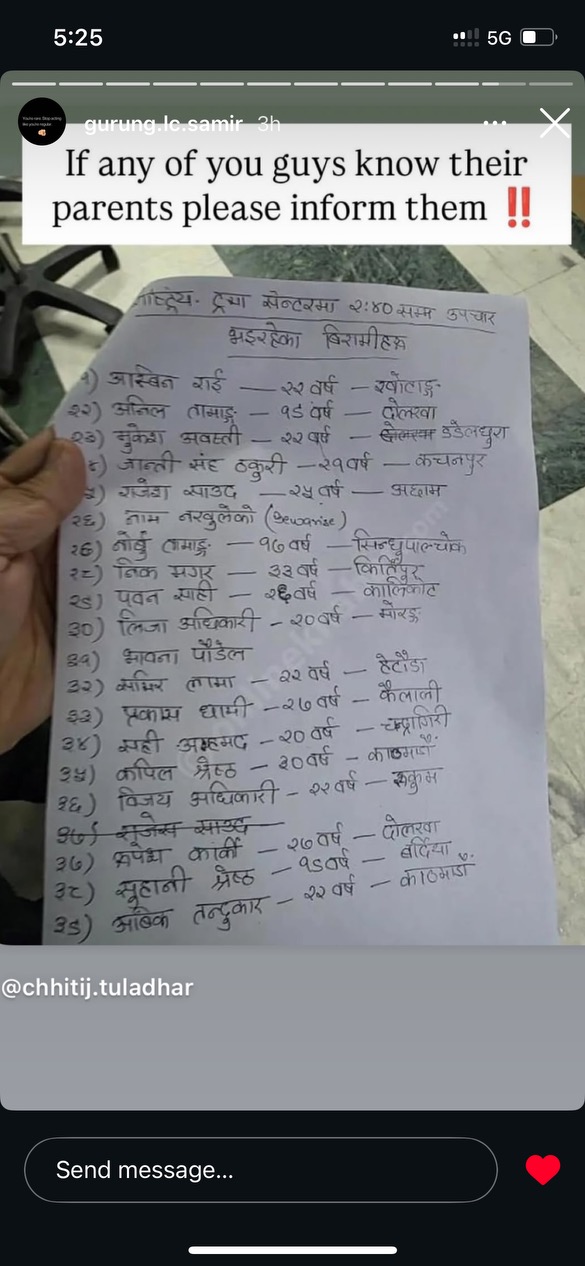 5:25
5G
gurung.lc.samir 3h
If any of you guys know their
parents please inform them ‼️
ट्रमा सेन्टरमा २:४० सम्म उपचार
भइरहेका बिरामीहरु
१) आस्बिन राई — २२ वर्ष – खोटाङ्ग
२२) अनिल तामाङ्ग – १९ वर्ष – दोलखा
२३) मुकेश अवस्ती – २२ वर्ष – डडेलधुरा
४) जान्ती संह ठकुरी – २१ वर्ष — कंचनपुर
५) राजेश साउद – २५ वर्ष — अछाम
२६) नाम नखुलेको
२७) नोर्बु तामाङ्ग — १७ वर्ष — सिन्धुपाल्चोक
२८) निक मगर — ३३ वर्ष – किर्तिपुर
२९) पवन साही – २६ वर्ष – कालिकोट
३०) लिजा अधिकारी – २० वर्ष – मोरङ्ग
३१) भावना पौडेल
३२) समिर लामा – २२ वर्ष – हेटौडा
३३) प्रकास धामी – २७ वर्ष – कैलाली
३४) सही अहमद – २० वर्ष – चन्द्रागिरी
३५) कपिल श्रेष्ठ – ३० वर्ष – काठमाडौं
३६) विजय अधिकारी – २२ वर्ष – रुकुम
३७) राजेस साउद
३७) रुपेश कार्की – २७ वर्ष – दोलखा
३८) सुहानी श्रेष्ठ – १९ वर्ष – बर्दिया
३९) अबिक तन्दुकार – २२ वर्ष – काठमाडौं
@chhitij.tuladhar
Send message...